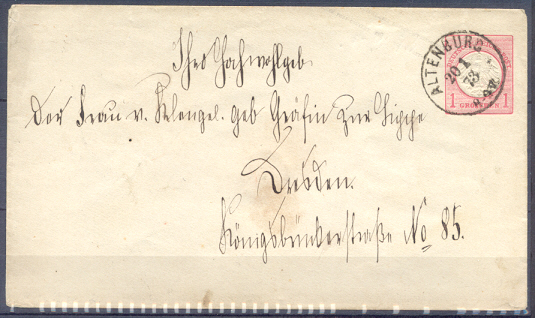 Ihro Hochwohlgeb.
Der Frau v. Klengel. geb Gräfin zur Lippe
Dresden.
Königsbrückerstraße No 85.
ALTENBURG
20 1
73
1 GROSCHEN 1